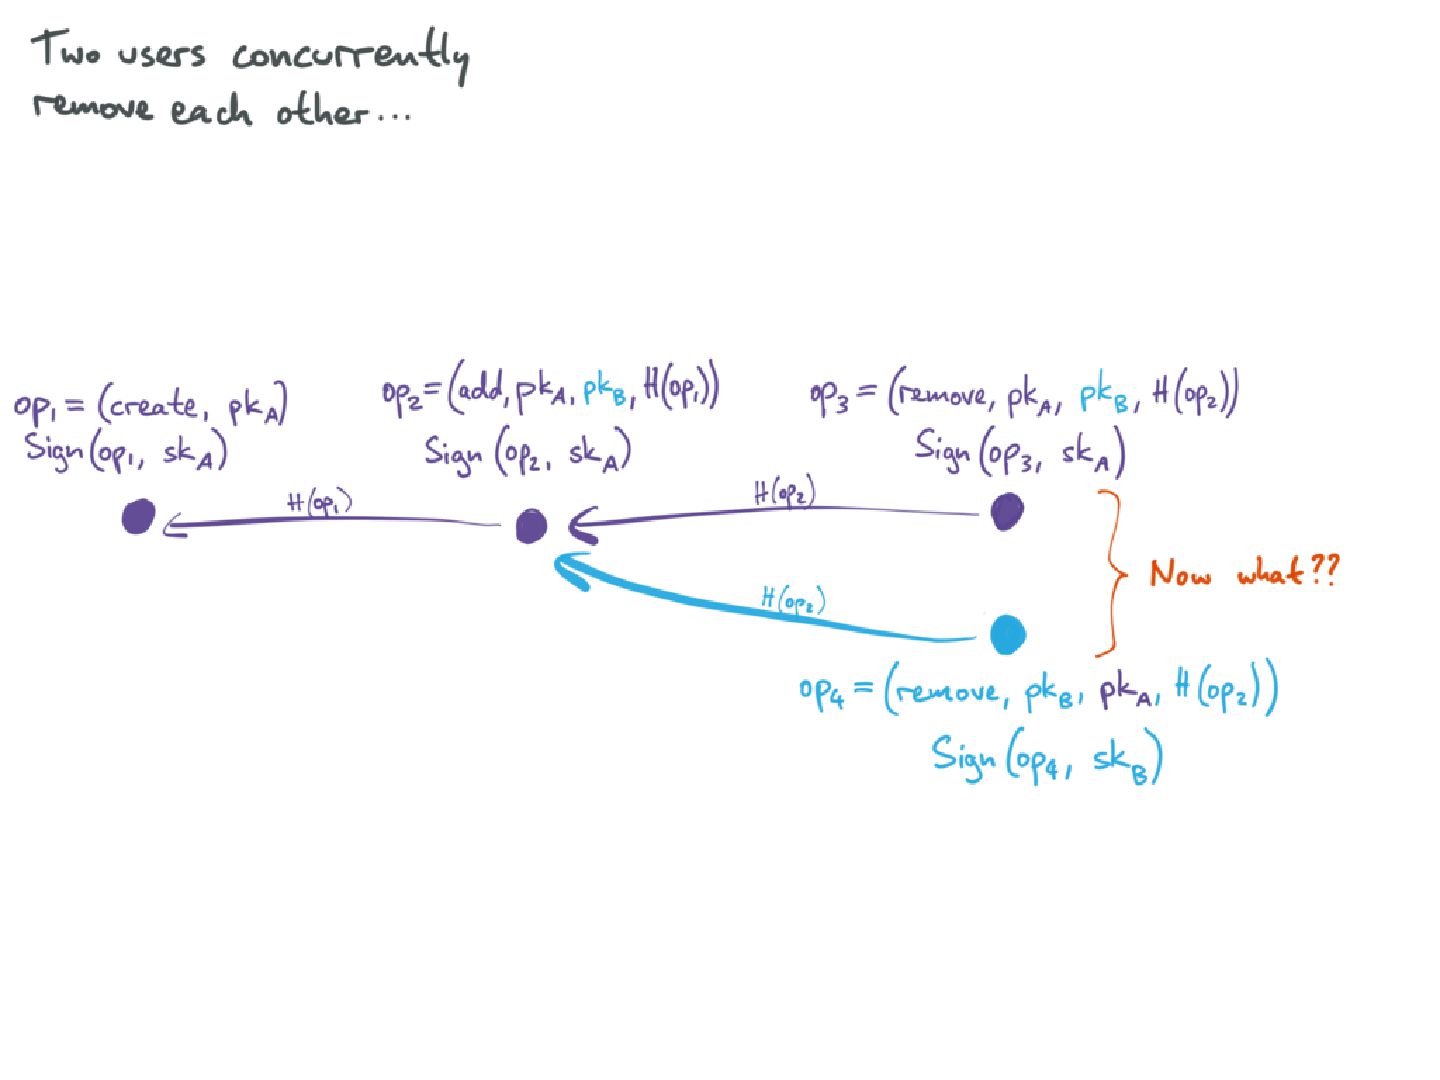 Two users concurrently
remove each other...
op₁ = (create, pk_A)
Sign(op₁, sk_A)
op₂ = (add, pk_A, pk_B, H(op₁))
Sign(op₂, sk_A)
op₃ = (remove, pk_A, pk_B, H(op₂))
Sign(op₃, sk_A)
H(op₁)
H(op₂)
H(op₂)
Now what??
op₄ = (remove, pk_B, pk_A, H(op₂))
Sign(op₄, sk_B)